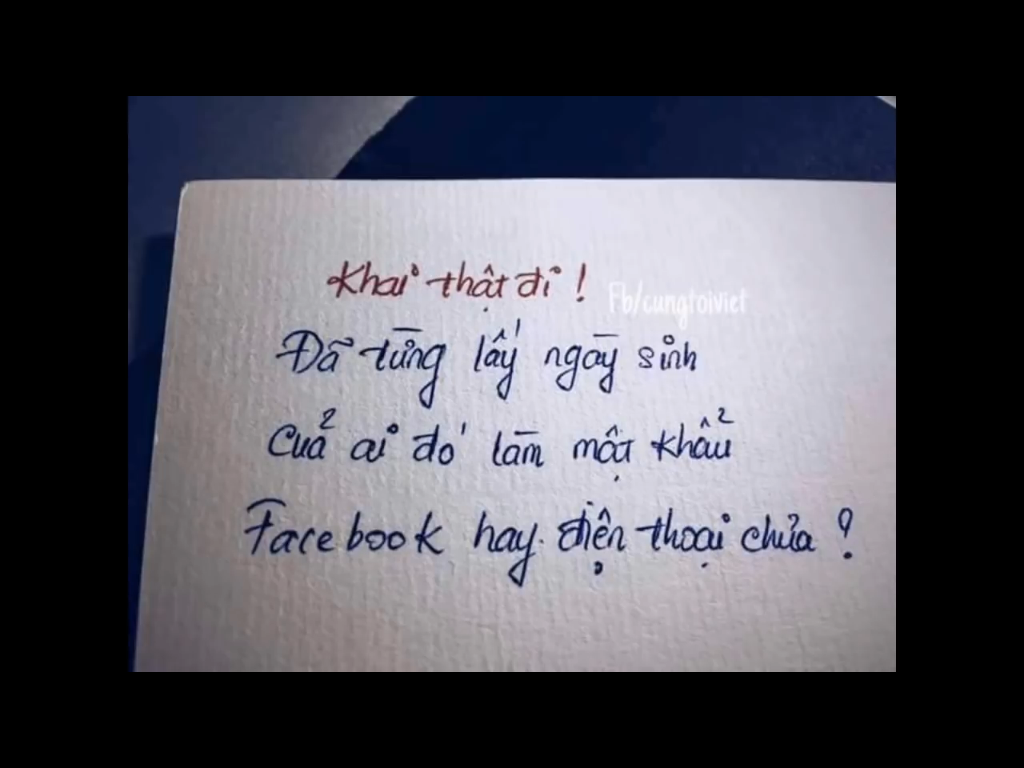 Khai thật đi !
Fb/cungtoiviet
Đã từng lấy ngày sinh
Của ai đó làm mật khẩu
Facebook hay điện thoại chưa ?